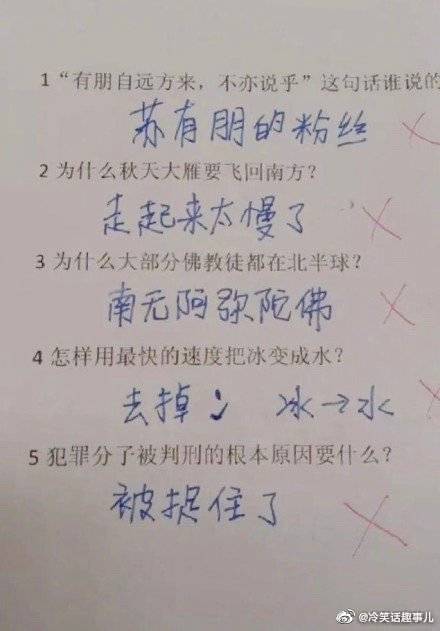 1“有朋自远方来，不亦说乎”这句话谁说的
苏有朋的粉丝
2 为什么秋天大雁要飞回南方？
走起来太慢了
3 为什么大部分佛教徒都在北半球？
南无阿弥陀佛
4 怎样用最快的速度把冰变成水？
去掉冫 冰→水
5 犯罪分子被判刑的根本原因要什么？
被捉住了
@冷笑话趣事儿